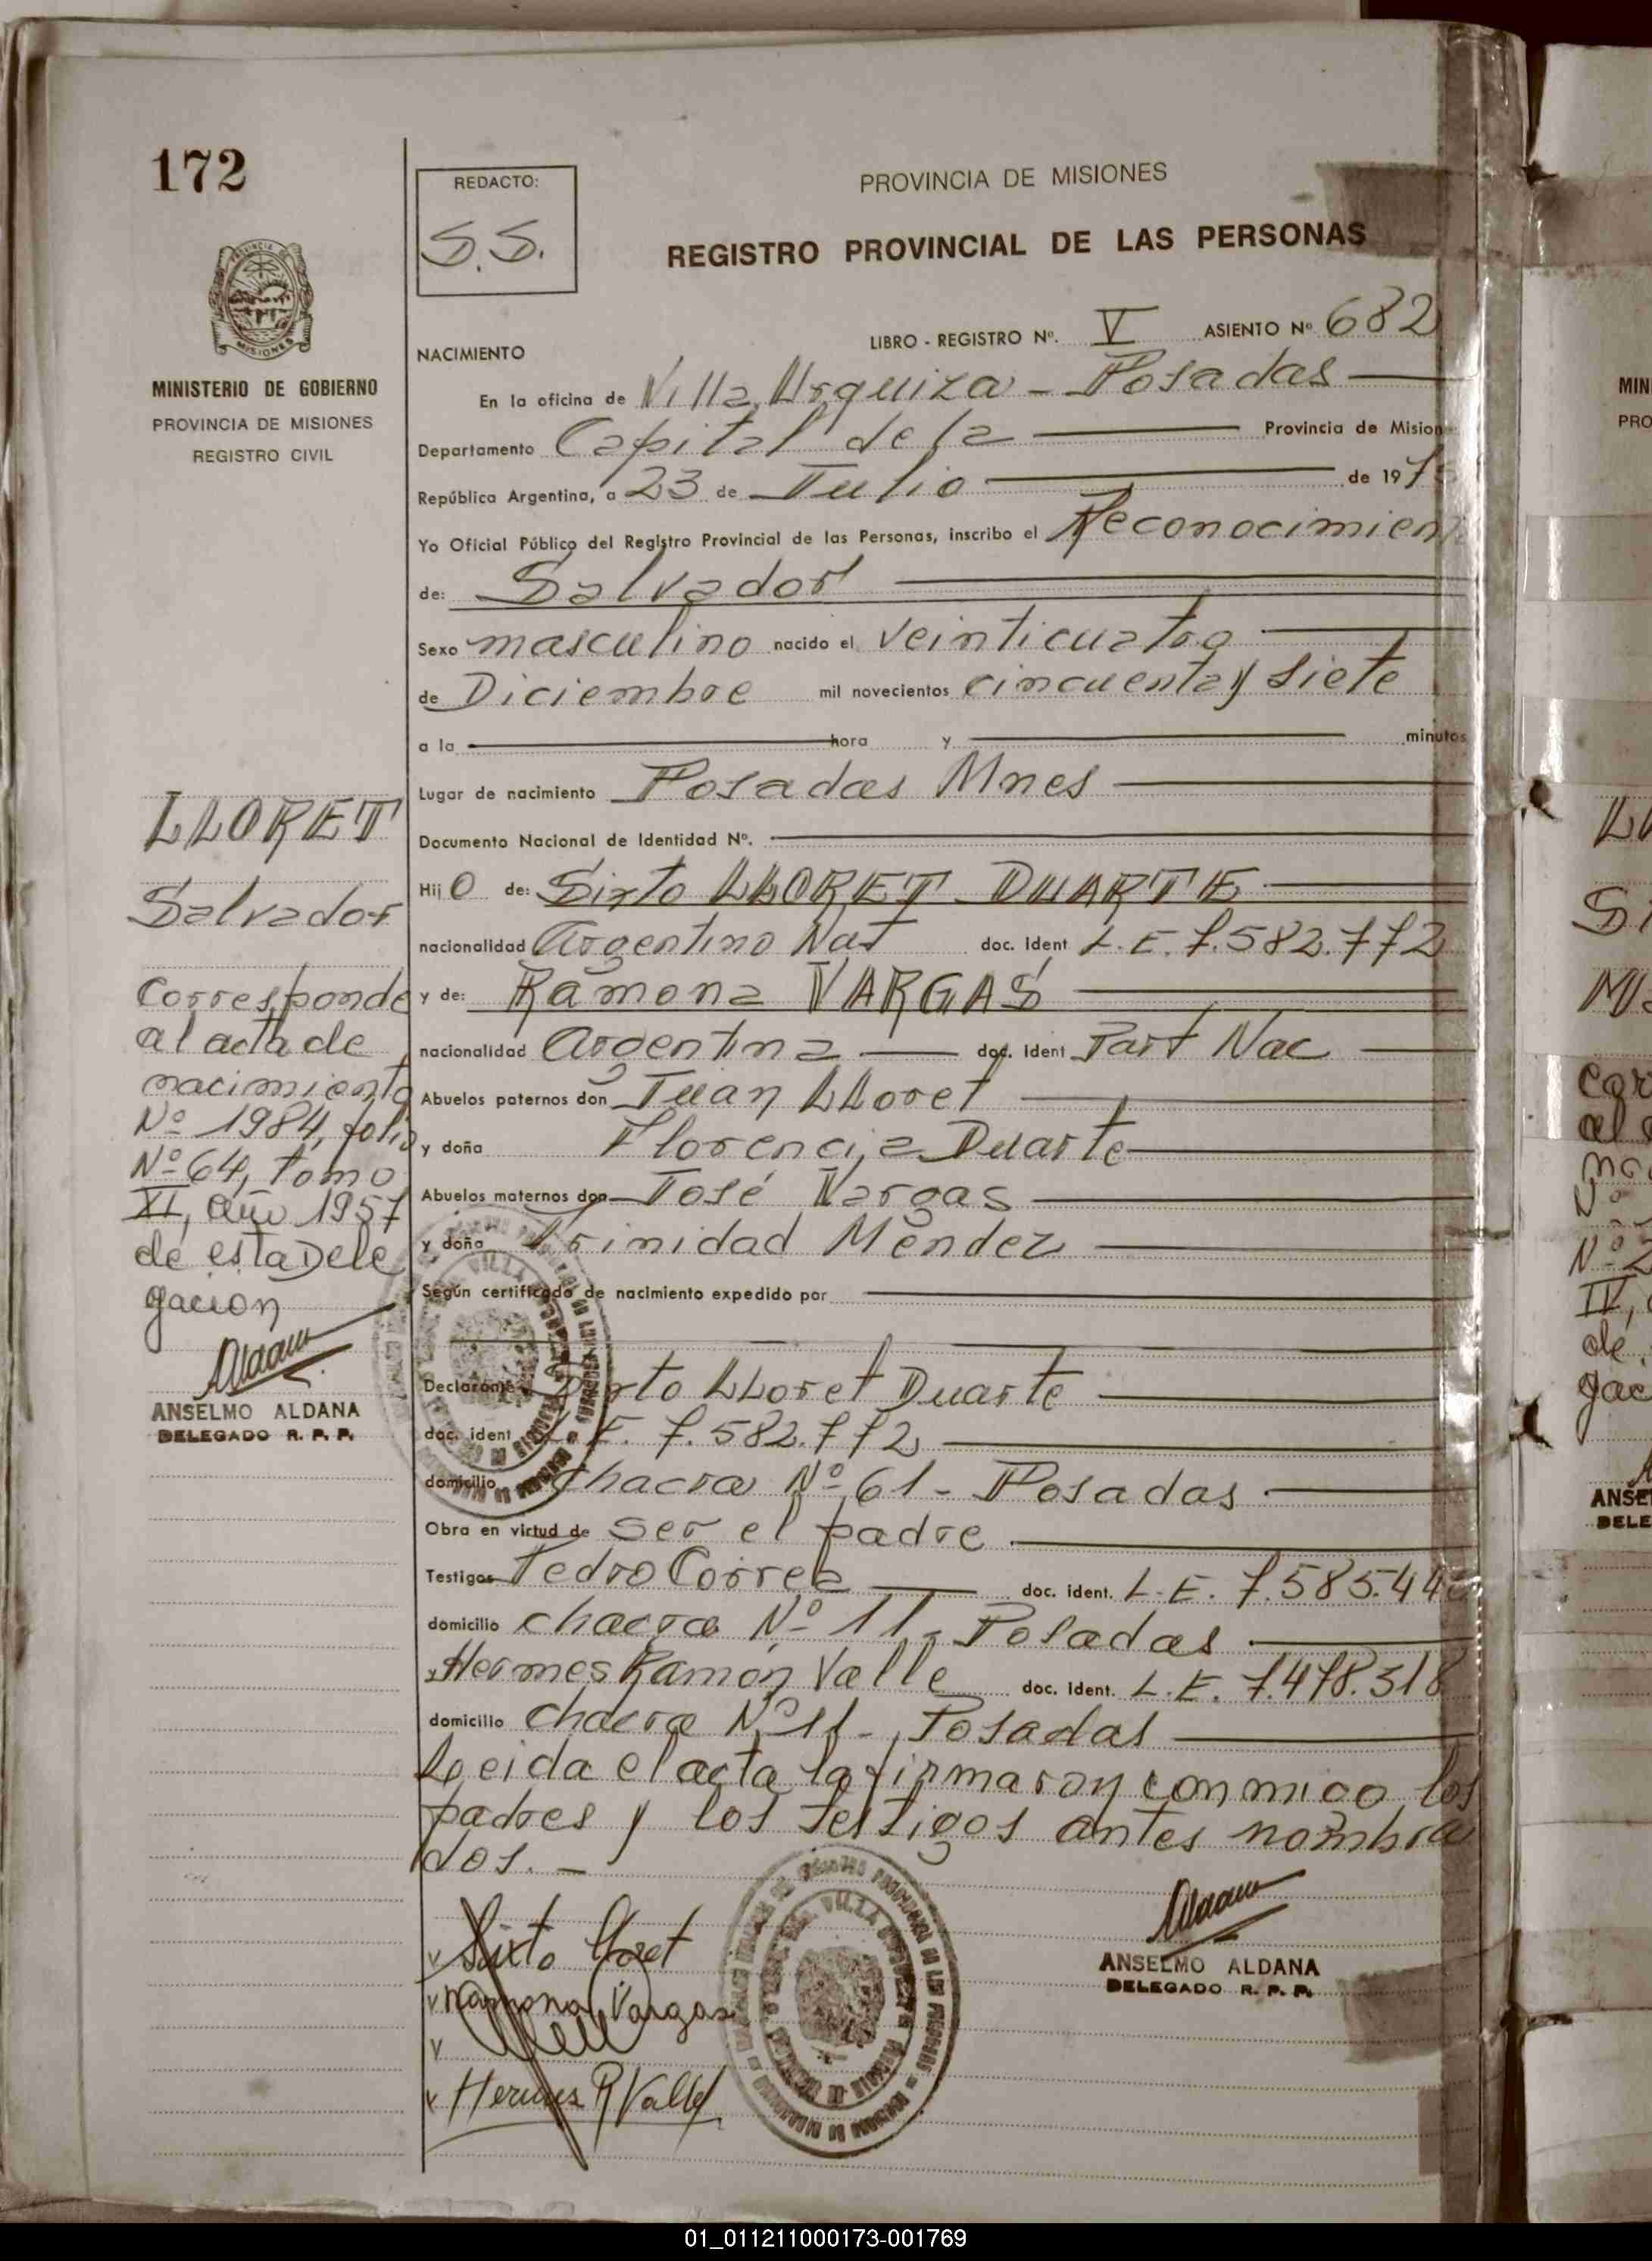 172
REDACTO:
S.S.
PROVINCIA DE MISIONES
REGISTRO PROVINCIAL DE LAS PERSONAS
PROVINCIA DE MISIONES
MINISTERIO DE GOBIERNO
PROVINCIA DE MISIONES
REGISTRO CIVIL
LIBRO - REGISTRO Nº. V ASIENTO Nº 682
NACIMIENTO
En la oficina de Villa Urquiza - Posadas
Departamento Capital de la Provincia de Mision
República Argentina, a 23 de Julio de 197
Yo Oficial Público del Registro Provincial de las Personas, inscribo el Reconocimien
de: Salvador
Sexo masculino nacido el veinticuatro
de Diciembre mil novecientos cincuenta y siete
a la hora y minutos
Lugar de nacimiento Posadas Mnes
Documento Nacional de Identidad Nº.
Hijo de: Sixto LLORET DUARTE
nacionalidad Argentino Nat doc. ident L.E. 7.582.772
y de: Ramona VARGAS
nacionalidad Argentina doc. ident Part Nac
Abuelos paternos don Juan LLoret
y doña Florencia Duarte
Abuelos maternos don José Vargas
y doña Trinidad Méndez
Según certificado de nacimiento expedido por
Declarante Sixto LLoret Duarte
doc. ident L.E. 7.582.772
domicilio chacra Nº 61 - Posadas
Obra en virtud de ser el padre
Testigos Pedro Correa doc. ident. L.E. 7.585.44
domicilio chacra Nº 11 - Posadas
y Hermes Ramón Valle doc. ident. L.E. 7.478.318
domicilio chacra Nº 11 - Posadas
Leida el acta la firmaron conmigo los
padres y los testigos antes nombra
dos. -
Sixto Lloret
Ramona Vargas
Hermes R Valle
ANSELMO ALDANA
DELEGADO R. P. P.
LLORET
Salvador
Corresponde
al acta de
nacimiento
Nº 1984, folio
Nº 64, tomo
XI, año 1957
de esta Dele
gacion
Aldana
ANSELMO ALDANA
DELEGADO R. P. P.
MIN
PRO
ANSE
DELE
01_011211000173-001769